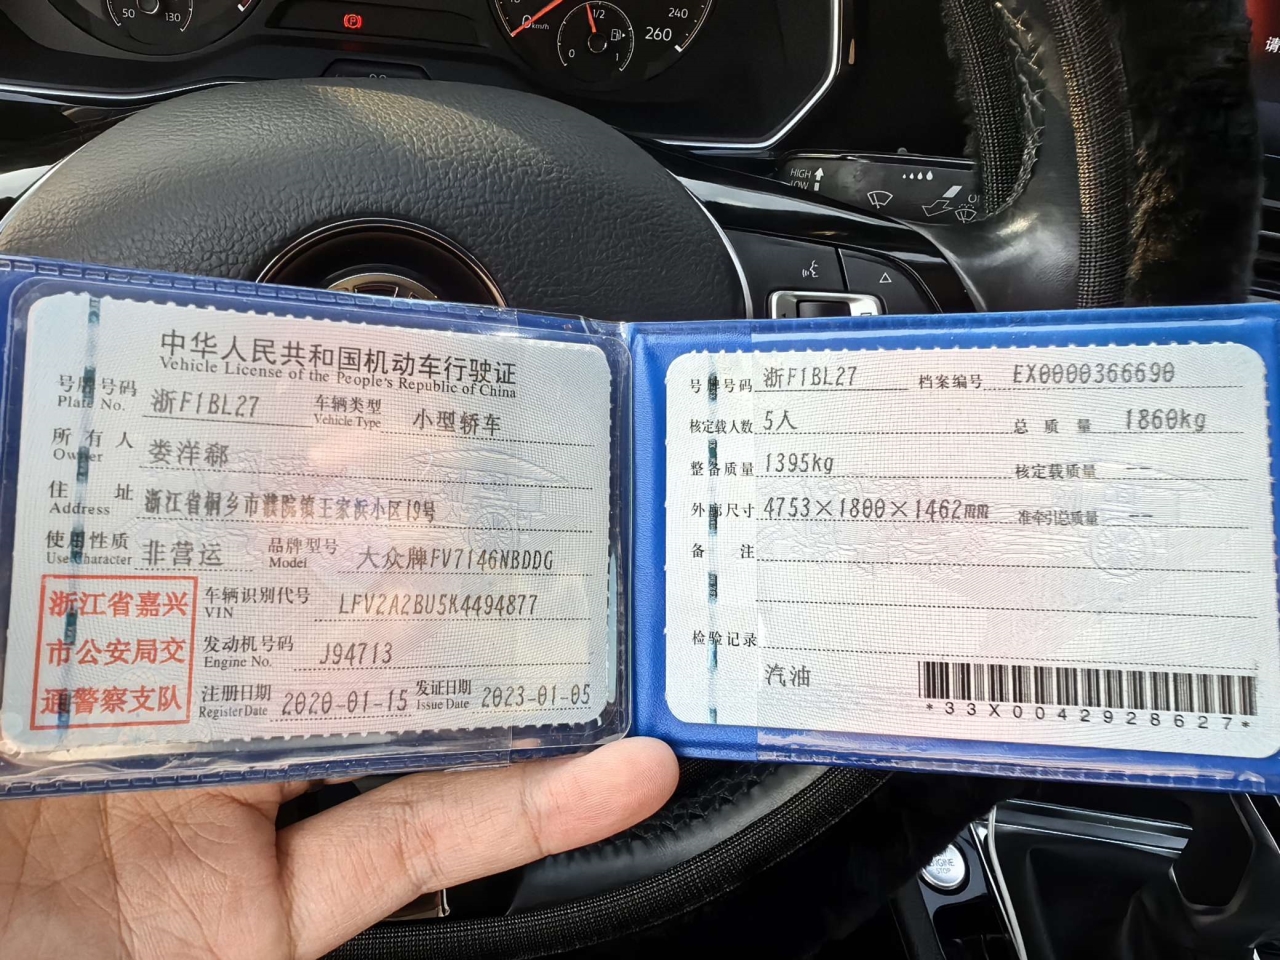 50
130
0
km/h
1/2
0
1
240
260
HIGH
LOW
中华人民共和国机动车行驶证
Vehicle License of the People's Republic of China
号牌号码 浙F1BL27 车辆类型 小型轿车
Plate No. Vehicle Type
所有人 娄洋鄀
Owner
住址 浙江省桐乡市濮院镇王家浜小区19号
Address
使用性质 非营运 品牌型号 大众牌FV7146NBDDG
Use Character Model
浙江省嘉兴
市公安局交
通警察支队
车辆识别代号 LFV2A2BU5K4494877
VIN
发动机号码 J94713
Engine No.
注册日期 2020-01-15 发证日期 2023-01-05
Register Date Issue Date
号牌号码 浙F1BL27 档案编号 EX0000366690
核定载人数 5人 总质量 1860kg
整备质量 1395kg 核定载质量 --
外廓尺寸 4753×1800×1462mm 准牵引总质量 --
备注
检验记录
汽油
*33X0042928627*
ENGINE
STOP